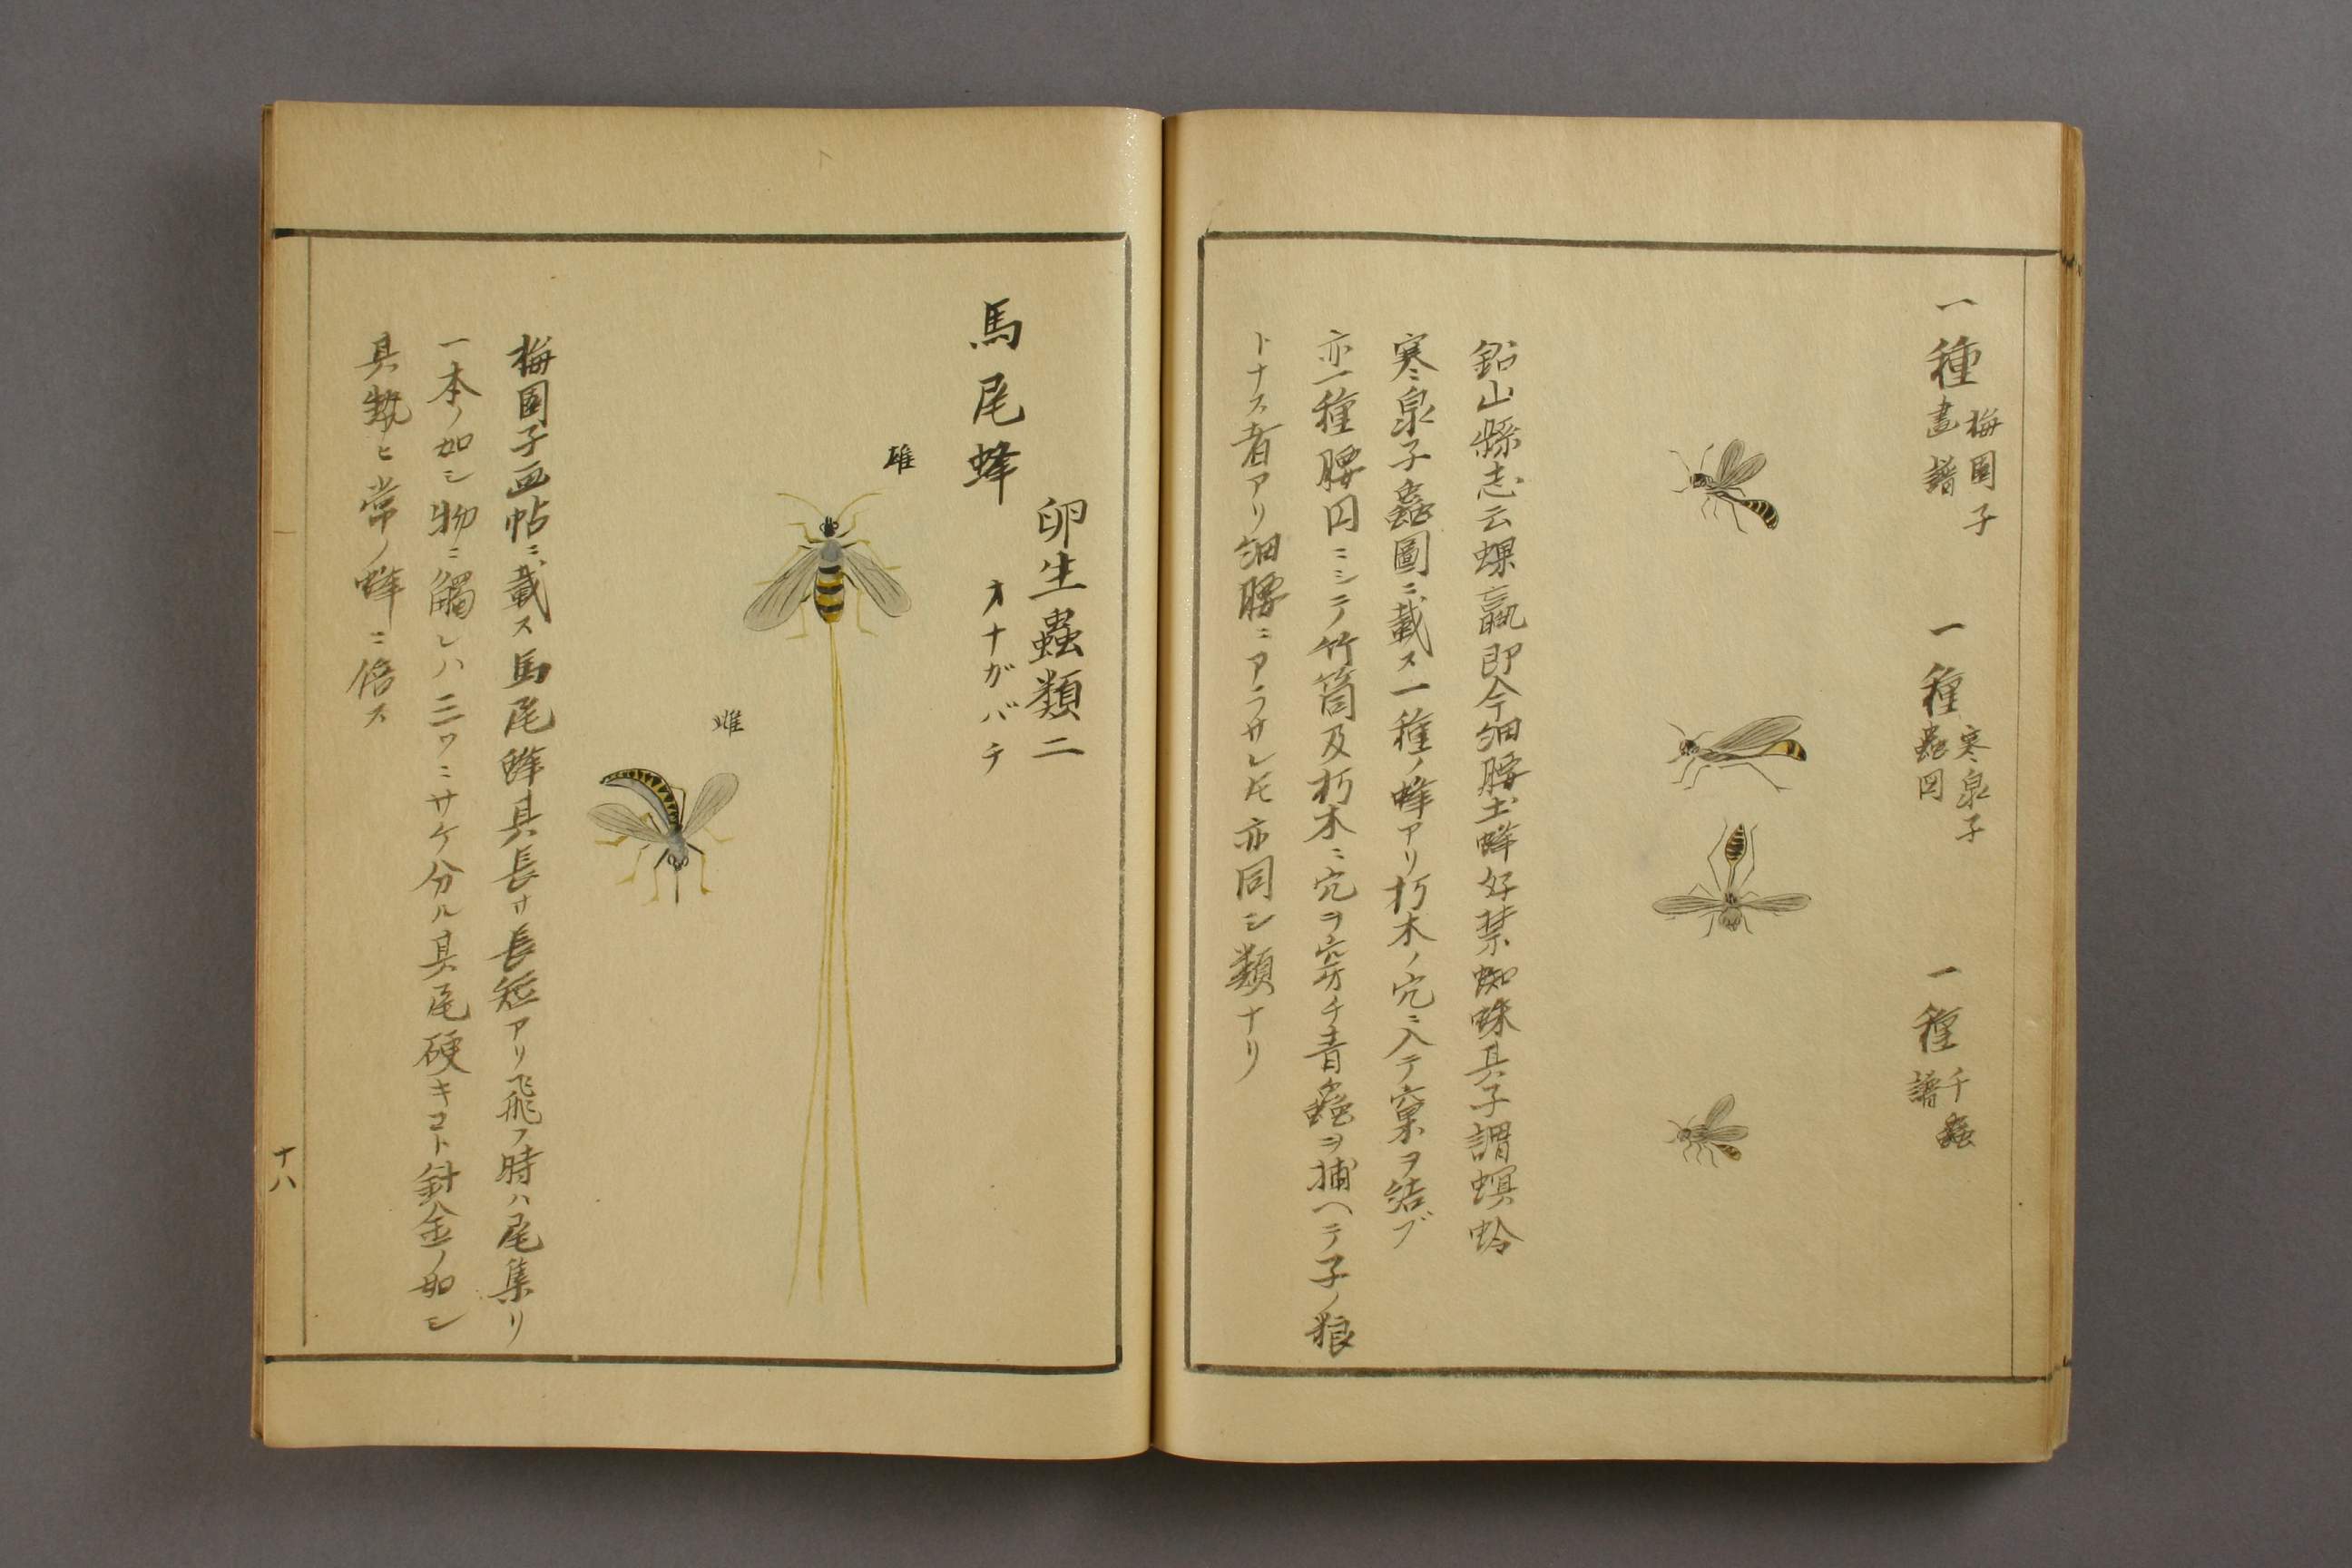 一種 梅園子
畫譜
一種 寒泉子
蟲図
一種 千蟲
譜
鉛山縣志云蜾蠃即今細腰土蜂好禁蜘蛛其子謂螟蛉
寒泉子蟲圖ニ載ス一種ノ蜂アリ朽木ノ穴ニ入テ窠ヲ結ブ
亦一種腰円ニシテ竹筒及朽木ニ穴ヲ穿チ青蟲ヲ捕ヘテ子ノ粮
トナス者アリ細腰ニアラサレ𪜈亦同シ類ナリ
卵生蟲類二
馬尾蜂 オナガバチ
雄
雌
梅園子画帖ニ載ス馬尾蜂其長サ長短アリ飛フ時ハ尾集リ
一本ノ如シ物ニ觸レハ三ツニサケ分ル其尾硬キコト針金ノ如シ
其螫ヒ常ノ蜂ニ倍ス
十八